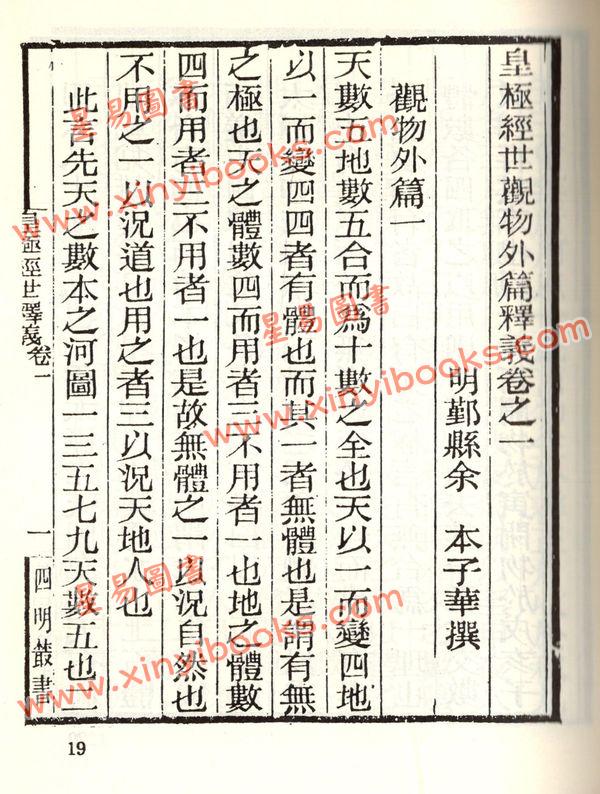 皇極經世觀物外篇釋義卷之一
明鄞縣余　本子華撰
觀物外篇一
天數五地數五合而爲十數之全也天以一而變四地
以一而變四四者有體也而其一者無體也是謂有無
之極也天之體數四而用者三不用者一也地之體數
四而用者三不用者一也是故無體之一以況自然也
不用之一以況道也用之者三以況天地人也
此言先天之數本之河圖一三五七九天數五也二
皇極經世釋義卷一
一
四明叢書
19
星易圖書
www.xinyibooks.com
星易圖書
www.xinyibooks.com
星易圖書
www.xinyibooks.com